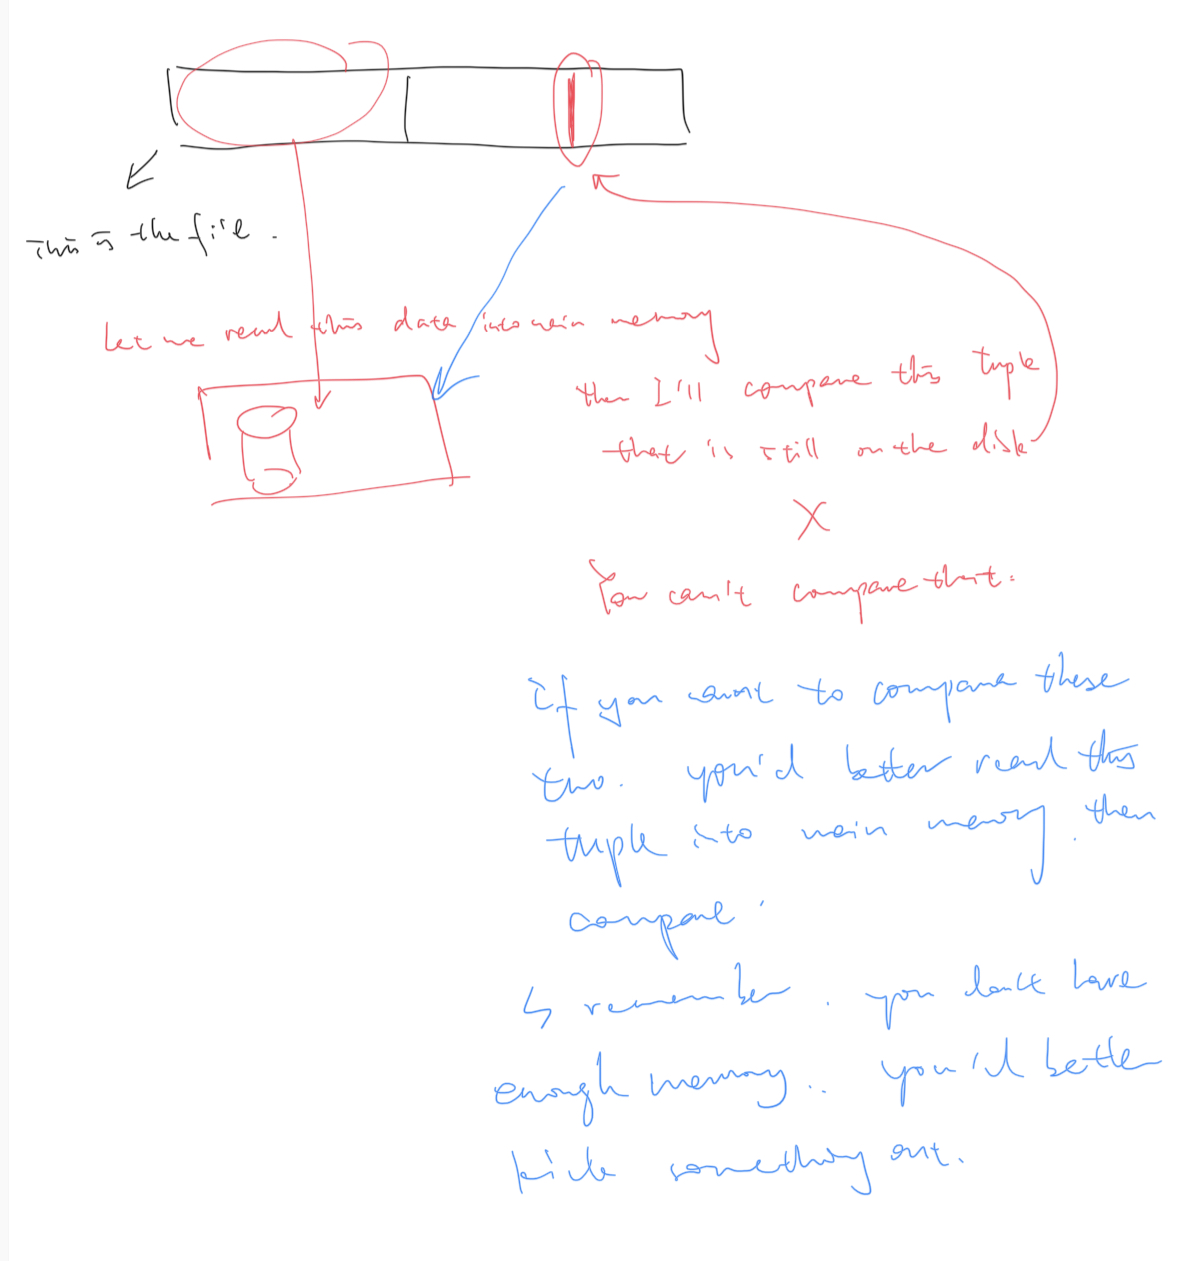 This is the file.
Let me read this data into main memory
then I'll compare this tuple
that is still on the disk
X
You can't compare that.
if you want to compare these
two. you'd better read this
tuple into main memory. then
compare.
↳ remember. you don't have
enough memory.. you'd better
kick something out.